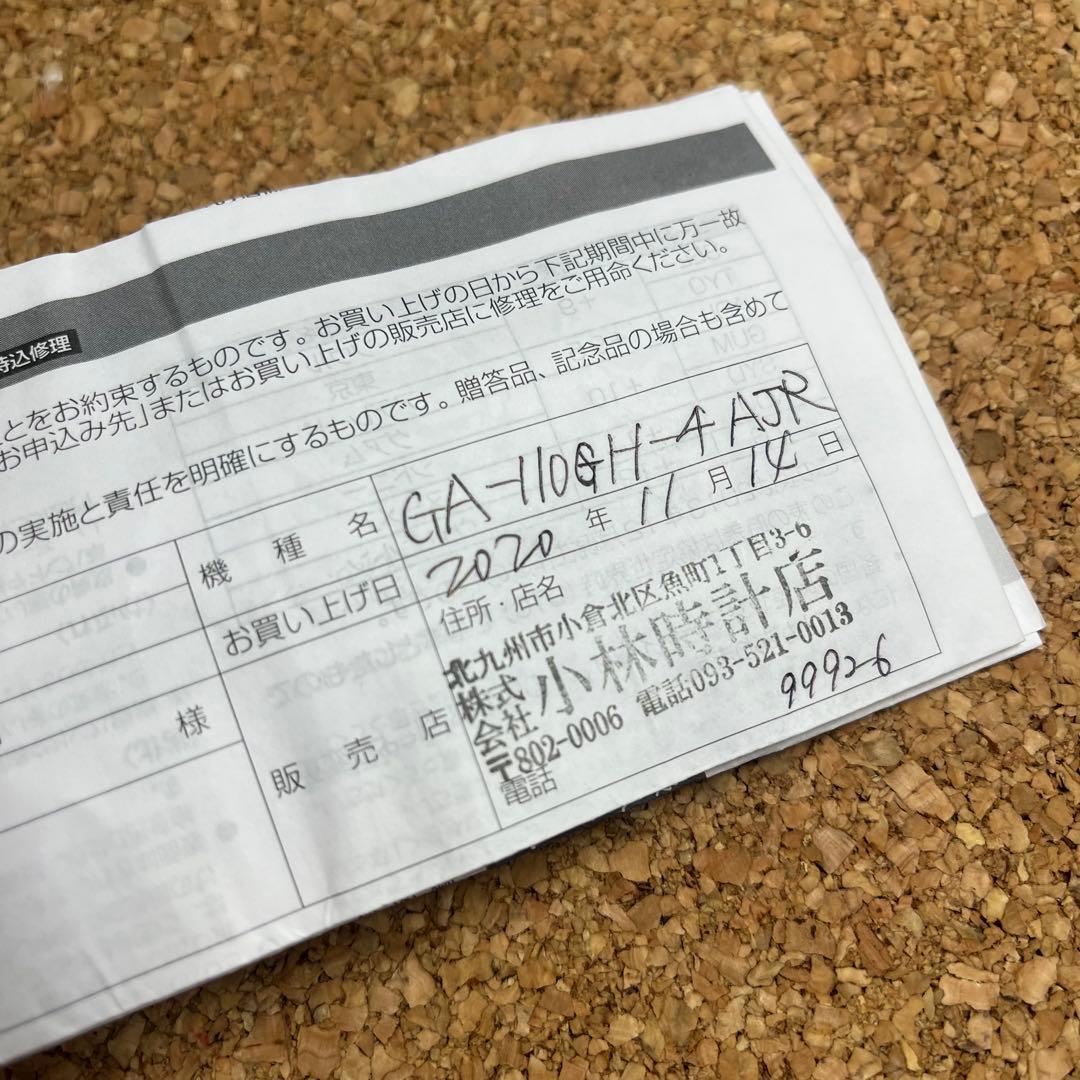 持込修理
とをお約束するものです。お買い上げの日から下記期間中に万一故
お申込み先」またはお買い上げの販売店に修理をご用命ください。
の実施と責任を明確にするものです。贈答品、記念品の場合も含めて
機種名 GA-110GH-4AJR
お買い上げ日 2020年11月14日
様
販売店
住所・店名
北九州市小倉北区魚町1丁目3-6
株式会社 小林時計店
〒802-0006 電話093-521-0013
電話
9992-6